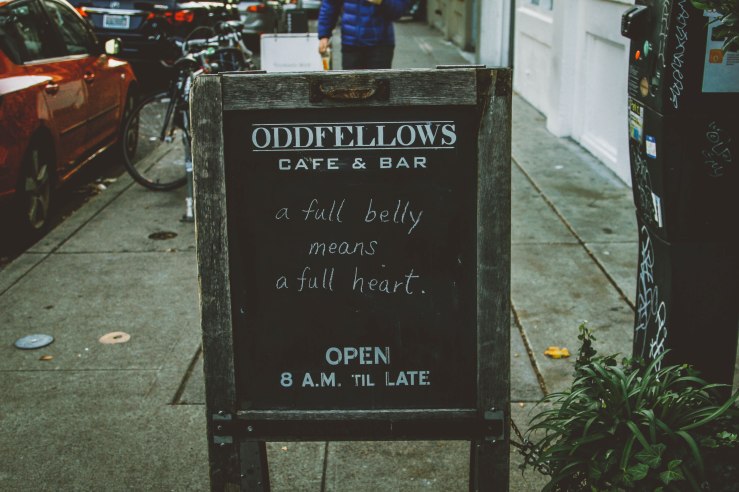 ODDFELLOWS
CAFE & BAR
a full belly
means
a full heart.
OPEN
8 A.M. TIL LATE